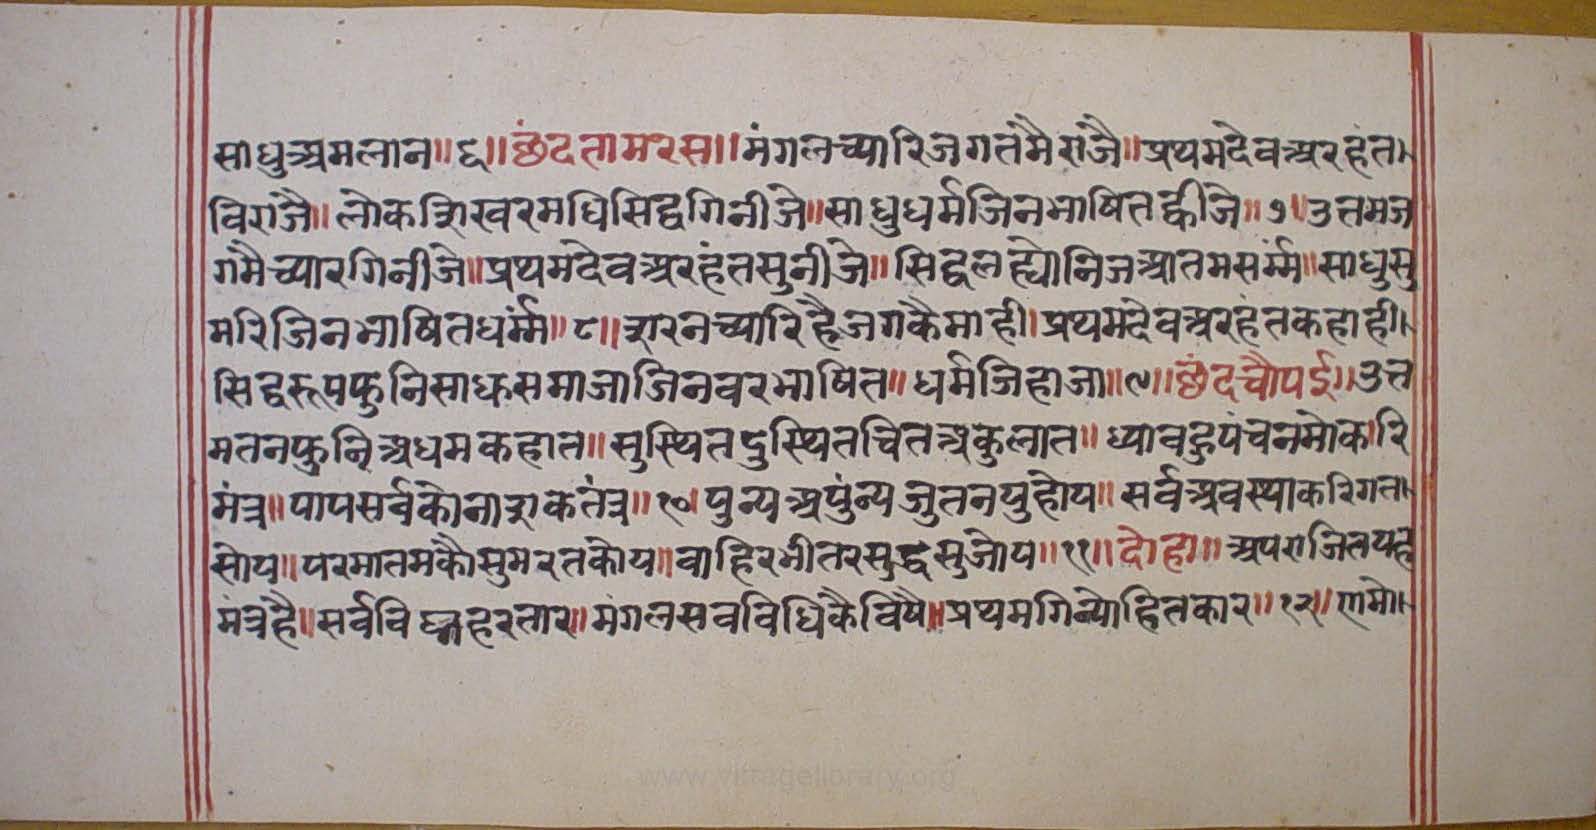 साधुअमलान॥६॥छंदतामरस॥मंगलच्यारिजगतमैराजै॥प्रथमदेवअरहंत।
विराजै॥लोकशिखरमधिसिद्धगिनीजे॥साधुधर्मजिनभाषितह्वीजे॥७॥उत्तमज
गमैच्यारगिनीजे॥प्रथमदेवअरहंतसुनीजे॥सिद्धलह्योनिजआतमसर्म्म॥साधुसु
मरिजिनभाषितधर्म्म॥८॥शरनच्यारिहैजगकैमाही।प्रथमदेवअरहंतकहाही।
सिद्धरूपफुनिसाधसमाजाजिनवरभाषित॥धर्मजिहाजा॥९॥छंदचौपई॥उत
मतनफुनिअधमकहात॥सुस्थितदुस्थितचितअकुलात॥ध्यावहुपंचनमोकारि
मंत्र॥पापसर्वकोनाशकतंत्र॥१०॥पुन्यअपुंन्यजुतनपुहोय॥सर्वअवस्थाकरिगत।
सोय॥परमातमकौसुमरतकोय॥वाहिरभीतरसुद्धसुजोय॥११॥दोहा॥अपराजितयह
मंत्रहै॥सर्वविघ्नहरतार॥मंगलसवविधिकैविषै॥प्रथमगिन्योहितकार॥१२॥णमो।
www.vitragelibrary.org